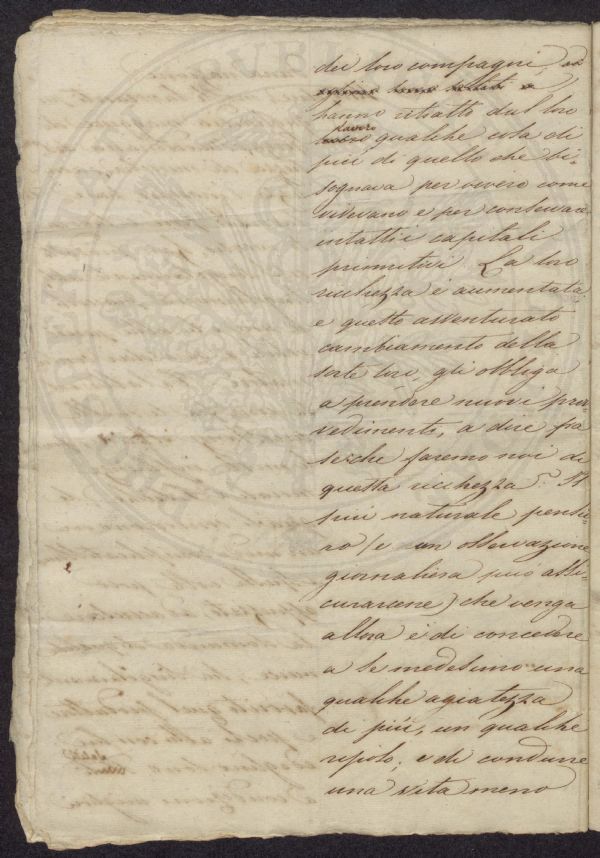 dei loro compagni, ed
hanno ritratto dal loro
lavoro
qualche cosa di
più di quello che bi-
sognava per vivere come
vivevano e per conservare
intatti i capitali
primitivi. La loro
ricchezza è aumentata
e questo avventurato
cambiamento della
sorte loro, gli obbliga
a prendere nuovi prov-
vedimenti, a dire fra
se: che faremo noi di
questa ricchezza? Il
più naturale pensie-
ro (e un osservazione
giornaliera può assi-
curarcene) che venga
allora è di concedere
a se medesimo una
qualche agiatezza
di più, un qualche
riposo, e di condurre
una vita meno